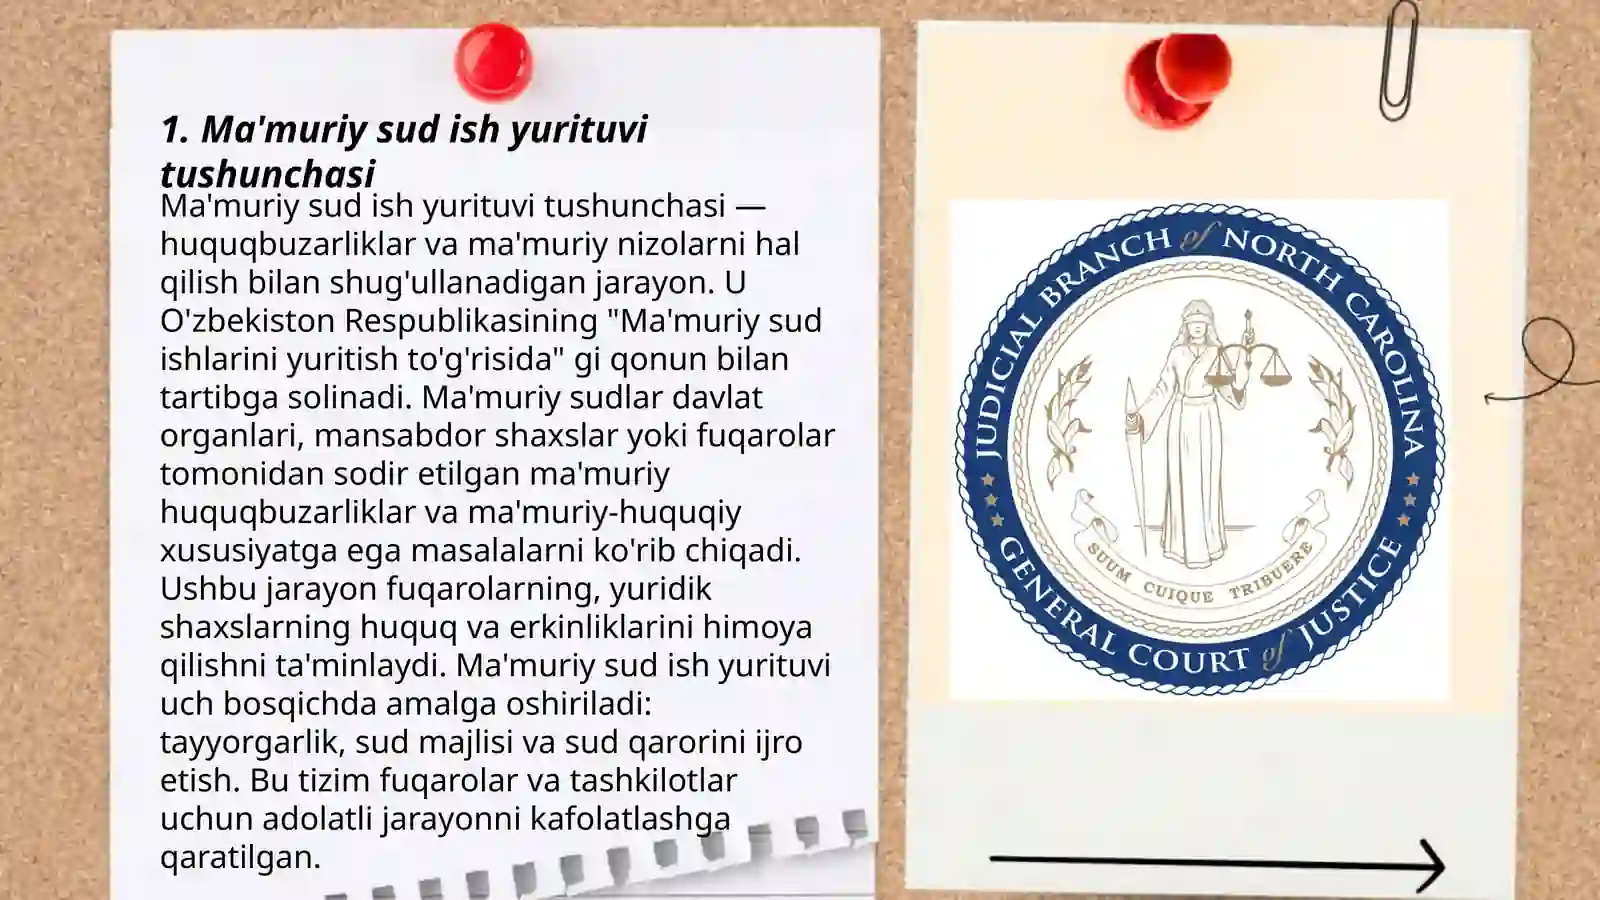 1. Ma'muriy sud ish yurituvi
tushunchasi
Ma'muriy sud ish yurituvi tushunchasi —
huquqbuzarliklar va ma'muriy nizolarni hal
qilish bilan shug'ullanadigan jarayon. U
O'zbekiston Respublikasining "Ma'muriy sud
ishlarini yuritish to'g'risida" gi qonun bilan
tartibga solinadi. Ma'muriy sudlar davlat
organlari, mansabdor shaxslar yoki fuqarolar
tomonidan sodir etilgan ma'muriy
huquqbuzarliklar va ma'muriy-huquqiy
xususiyatga ega masalalarni ko'rib chiqadi.
Ushbu jarayon fuqarolarning, yuridik
shaxslarning huquq va erkinliklarini himoya
qilishni ta'minlaydi. Ma'muriy sud ish yurituvi
uch bosqichda amalga oshiriladi:
tayyorgarlik, sud majlisi va sud qarorini ijro
etish. Bu tizim fuqarolar va tashkilotlar
uchun adolatli jarayonni kafolatlashga
qaratilgan.
JUDICIAL BRANCH of NORTH CAROLINA
SUUM CUIQUE TRIBUERE
GENERAL COURT of JUSTICE